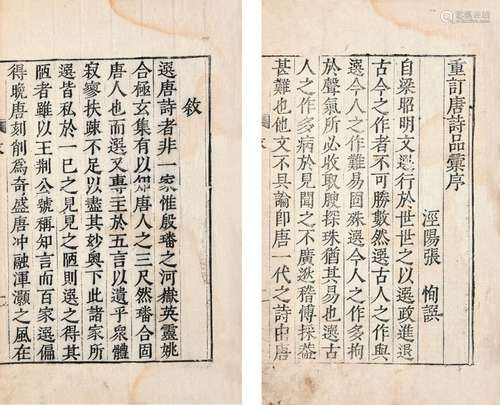 重訂唐詩品彙序
涇陽張 恂譔
自梁昭明文選行於世世之以選政進退
古今之作者不可勝數然選古人之作與
選今人之作難易固殊選今人之作多拘
於聲氣所必收取腴探珠猶其易也選古
人之作多病於見聞之不廣逖傳採葢
甚難也他文不具論卽唐一代之詩由唐
敘
選唐詩者非一家惟殷璠之河嶽英靈姚
合極玄集有以知唐人之三尺然璠合固
唐人也而選又專主於五言以遺乎衆體
寂寥扶疎不足以盡其妙奧下此諸家所
選皆私於一已之見見之陋則選之得其
陋者雖以王荆公號稱知言而百家選偏
得晚唐刻削爲奇盛唐冲融渾灝之風在